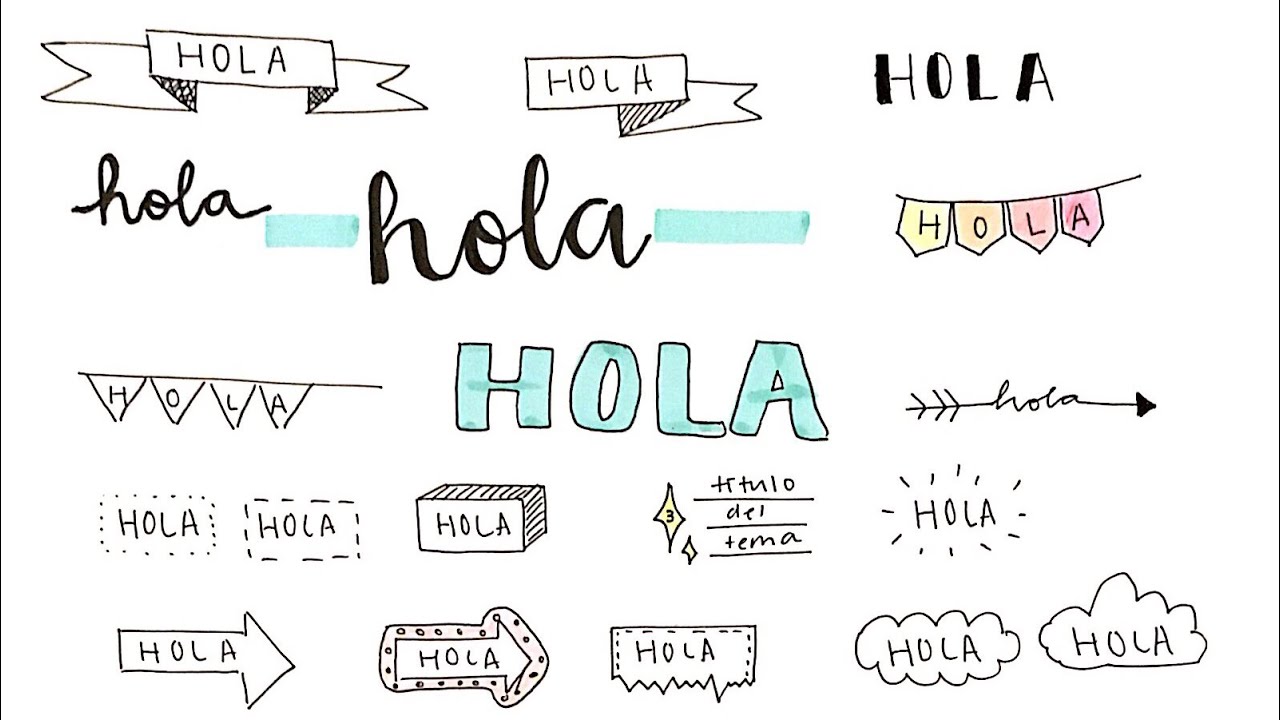 HOLA
HOLA
HOLA
hola
hola
HOLA
HOLA
HOLA
hola
HOLA
HOLA
HOLA
3
título
del
tema
HOLA
HOLA
HOLA
HOLA
HOLA
HOLA